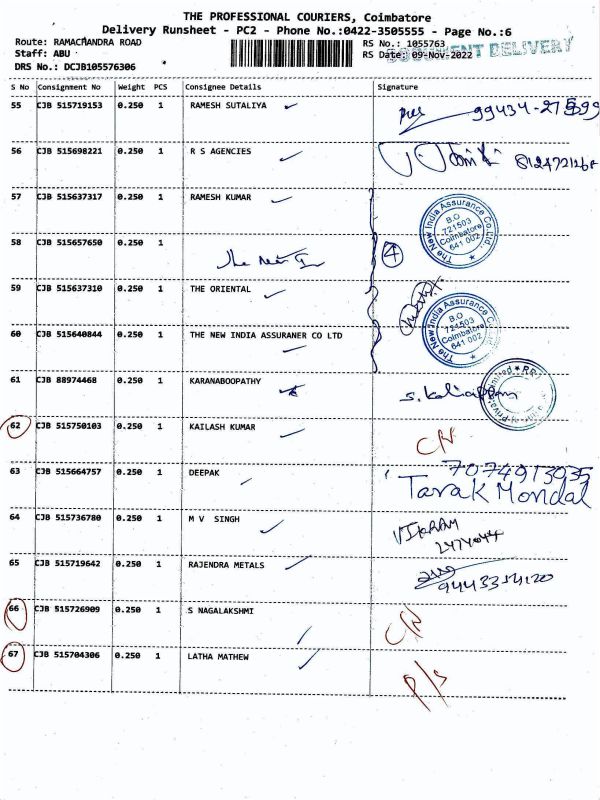 THE PROFESSIONAL COURIERS, Coimbatore
Delivery Runsheet - PC2 - Phone No.:0422-3505555 - Page No.:6
Route: RAMACHANDRA ROAD
Staff: ABU
DRS No.: DCJB105576306
RS No.: 1055763
RS Date: 09-Nov-2022
DOCUMENT DELIVERY
S No Consignment No Weight PCS Consignee Details Signature
55 CJB 515719153 0.250 1 RAMESH SUTALIYA
56 CJB 515698221 0.250 1 R S AGENCIES
57 CJB 515637317 0.250 1 RAMESH KUMAR
The New India Assurance Co.Ltd
B.O.
721503
Coimbatore
641 002
58 CJB 515657650 0.250 1
The New In
4
59 CJB 515637310 0.250 1 THE ORIENTAL
60 CJB 515640844 0.250 1 THE NEW INDIA ASSURANER CO LTD
The New India Assurance Co.Ltd
B.O.
721503
Coimbatore
641 002
61 CJB 88974468 0.250 1 KARANABOOPATHY
62 CJB 515750103 0.250 1 KAILASH KUMAR
C/N
63 CJB 515664757 0.250 1 DEEPAK 7074913935
Tarak Mondal
64 CJB 515736780 0.250 1 M V SINGH VIKRAM
2474044
65 CJB 515719642 0.250 1 RAJENDRA METALS
66 CJB 515726909 0.250 1 S NAGALAKSHMI
C/N
67 CJB 515704306 0.250 1 LATHA MATHEW
P/S